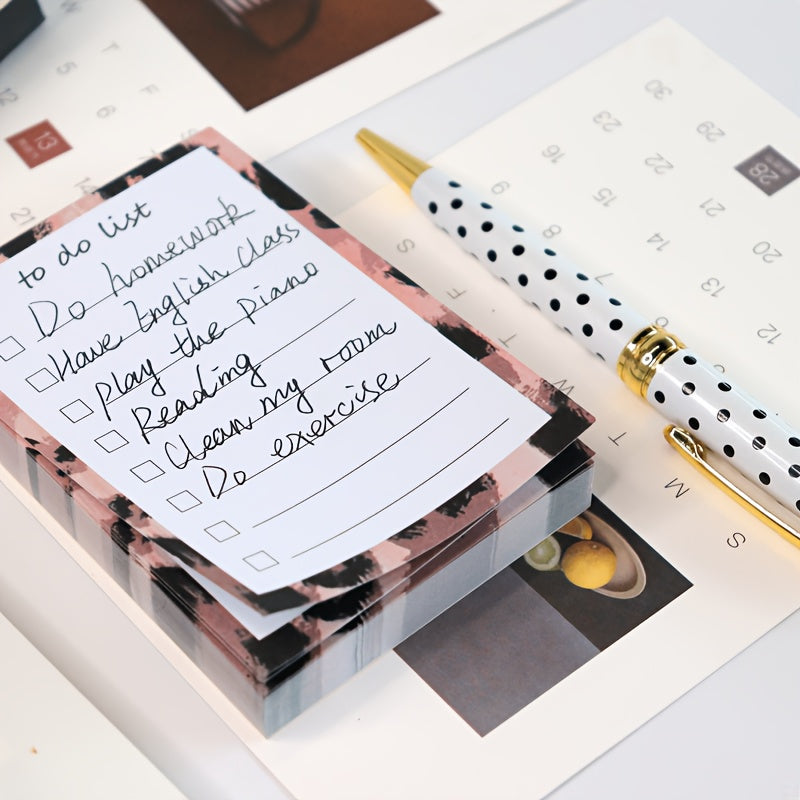 to do list
Do homework
Have English class
play the piano
Reading
Clean my room
Do exercise
W T F S
5 6
12 13 14
21
30 23 16 9
29 22 15 8
28 21 14 7
20 13 6
12
S F T W T M S